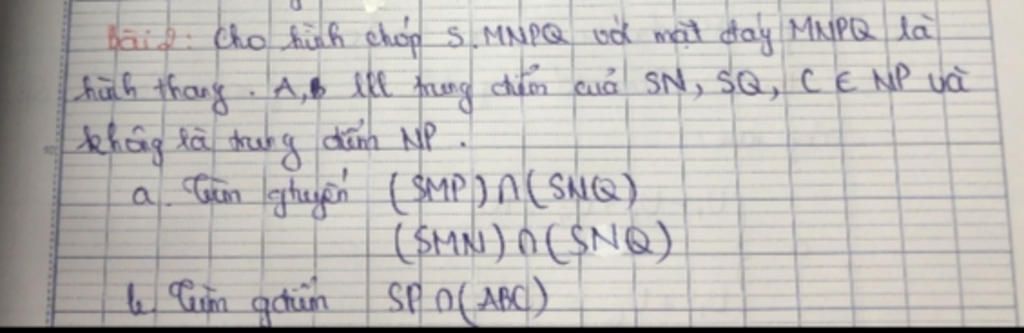 Bài 2: Cho hình chóp S.MNPQ với mặt đáy MNPQ là
hình thang. A, B lll trung điểm của SN, SQ, C ∈ NP và
không là trung điểm NP.
a. Tìm gtuyến (SMP)∩(SNQ)
(SMN)∩(SNQ)
b, Tìm gđiểm SP∩(ABC)